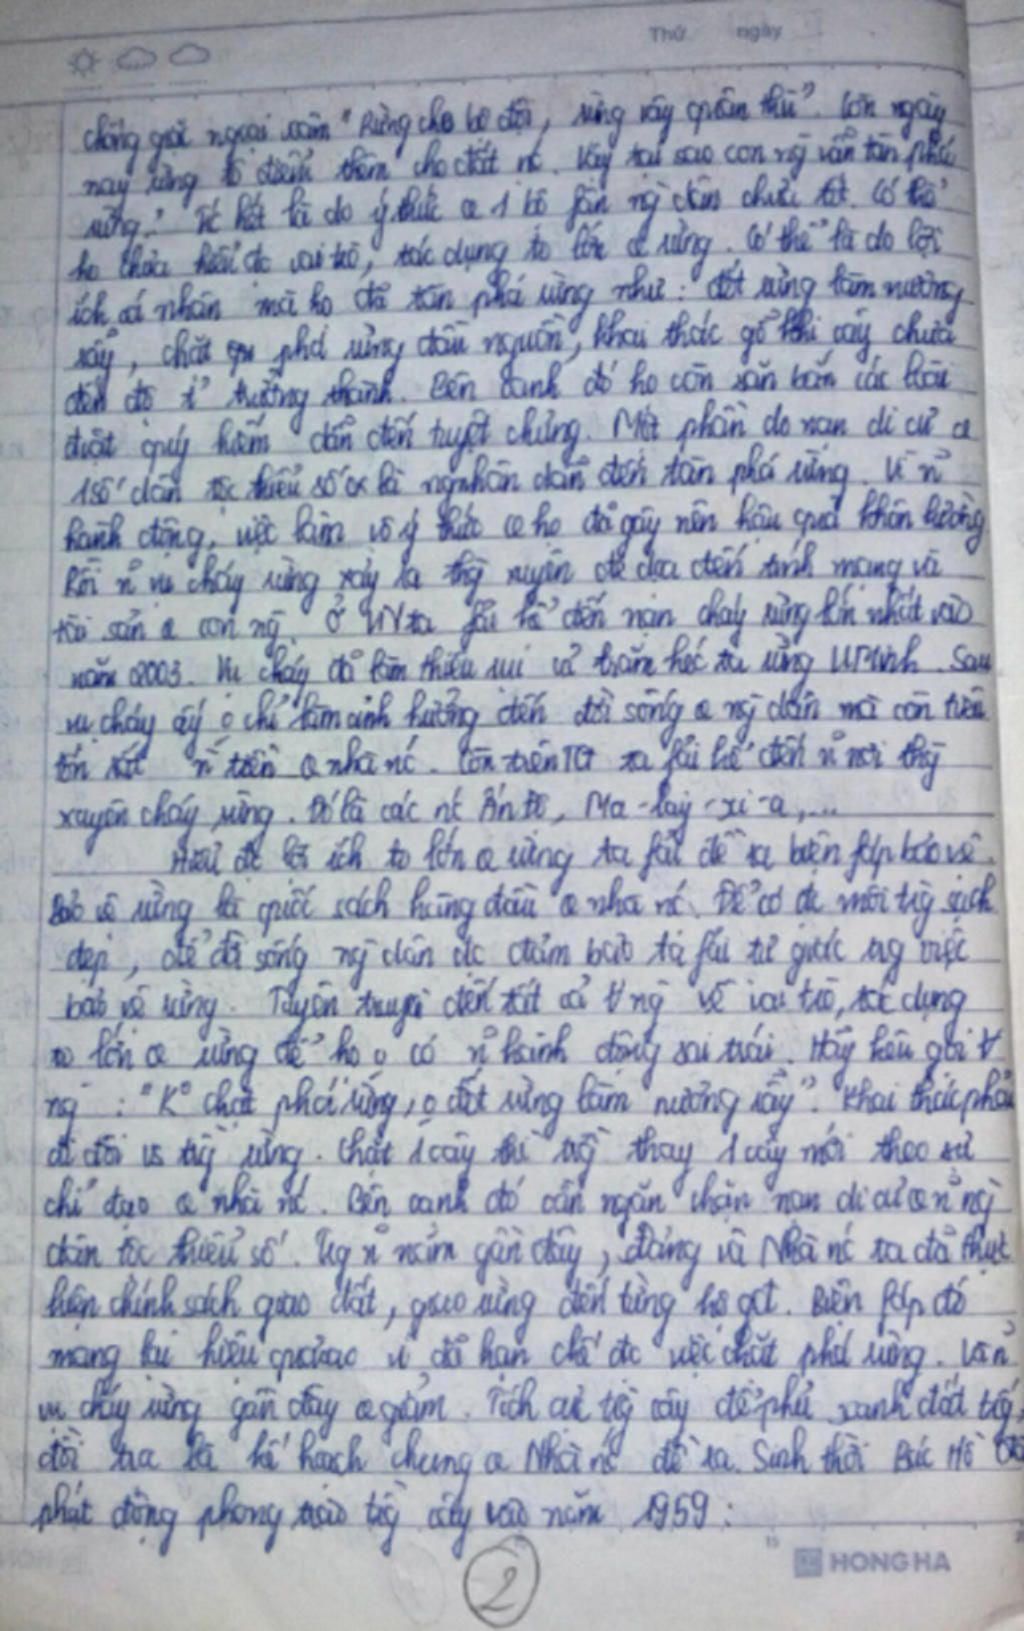 Thứ ngày
chống giặc ngoại xâm "Rừng che bộ đội, rừng vây quân thù". Còn ngày
nay rừng tô điểm thêm cho đất nc. Vậy tại sao con ng vẫn tàn phá
rừng. Tc hết là do ý thức @ 1 bộ fận ng dân chưa tốt. Có thể
họ chưa hiểu đc vai trò, tác dụng to lớn @ rừng. Có thể là do lợi
ích cá nhân mà họ đã tàn phá rừng như: đốt rừng làm nương
rẫy, chặt phá rừng đầu nguồn, khai thác gỗ khi cây chưa
đến độ trưởng thành. Bên cạnh đó họ còn săn bắn các loài
đvật quý hiếm dẫn đến tuyệt chủng. Một phần do nạn di cư @
1 số dân tộc thiểu số là ng nhân dẫn đến tàn phá rừng. Vì n~
hành động, việc làm vô ý thức @ họ đã gây nên hậu quả khôn lường
Rồi n~ vụ cháy rừng xảy ra thg xuyên đe dọa đến tính mạng và
tài sản @ con ng. Ở VN ta fải kể đến nạn cháy rừng lớn nhất vào
năm 2003. Vụ cháy đã làm thiêu rụi cả trăm héc ta rừng UMinh. Sau
vụ cháy ấy o chỉ làm ảnh hưởng đến đời sống @ ng dân mà còn tiêu
tốn rất n` tiền @ nhà nc. Còn trên TG ta fải kể đến n~ nơi thg
xuyên cháy rừng. Đó là các nc Ấn Độ, Ma-lay-xi-a,...
Hiểu đc lợi ích to lớn @ rừng ta fải đề ra biện fáp bảo vệ.
Bảo vệ rừng là quốc sách hàng đầu @ nhà nc. Để có đc môi trg sạch
đẹp, để đời sống ng dân đc đảm bảo ta fải tự giác trg việc
bảo vệ rừng. Tuyên truyền đến tất cả ∀ ng về vai trò, tác dụng
to lớn @ rừng để họ o có n~ hành động sai trái. Hãy kêu gọi ∀
ng : "K° chặt phá rừng, o đốt rừng làm nương rẫy". Khai thác phải
đi đôi vs trg rừng. Chặt 1 cây thì trg thay 1 cây mới theo sự
chỉ đạo @ nhà nc. Bên cạnh đó cần ngăn chặn nạn di cư @ n~ ng
dân tộc thiểu số. Trg n~ năm gần đây, Đảng và Nhà nc ta đã thực
hiện chính sách giao đất, giao rừng đến từng hộ gđ. Biện fáp đó
mang lại hiệu quả cao vì đã hạn chế đc việc chặt phá rừng.
vụ cháy rừng gần đây giảm. Tích cực trg cây để phủ xanh đất trg,
đồi trọc là kế hoạch chung @ Nhà nc đề ra. Sinh thời Bác Hồ đã
phát động phong trào trg cây vào năm 1959:
HONG HA
2